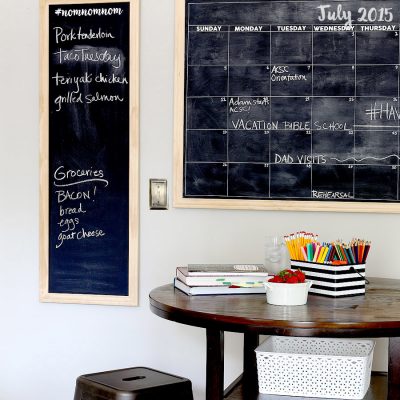 #nomnomnom
Pork tenderloin
Taco Tuesday
teriyaki chicken
grilled salmon
Groceries
BACON!
bread
eggs
goat cheese
July 2015
SUNDAY MONDAY TUESDAY WEDNESDAY THURSDAY
ACSC
Orientation
Adam staff
ACSC!
#HAV
VACATION BIBLE SCHOOL
DAD VISITS
REHEARSAL